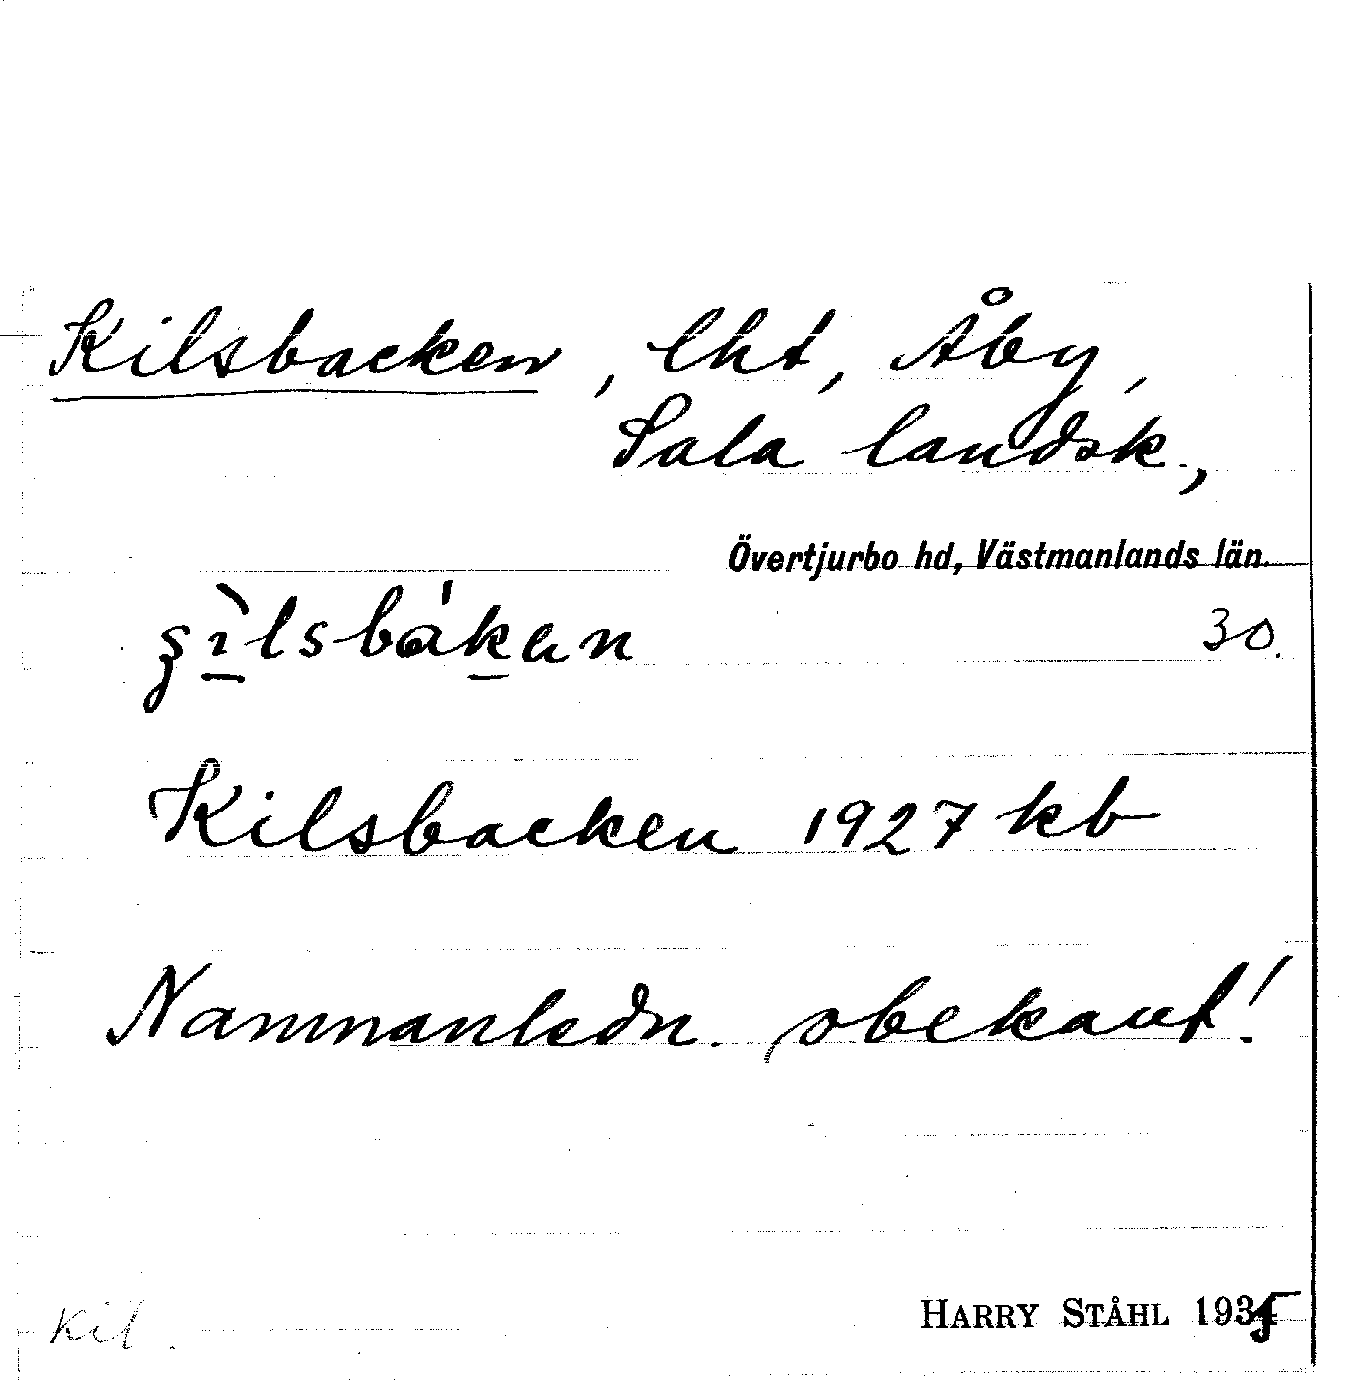 Kilsbacken, lht, Åby,
Sala landsk.,
Övertjurbo hd, Västmanlands län.
30.
Kilsbacken 1927 kb
Namnanledn. obekant!
Kil.
HARRY STÅHL 1935